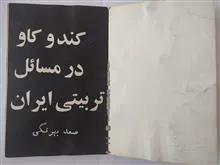 کند و کاو
در مسائل
تربیتی ایران
صمد بهرنگی